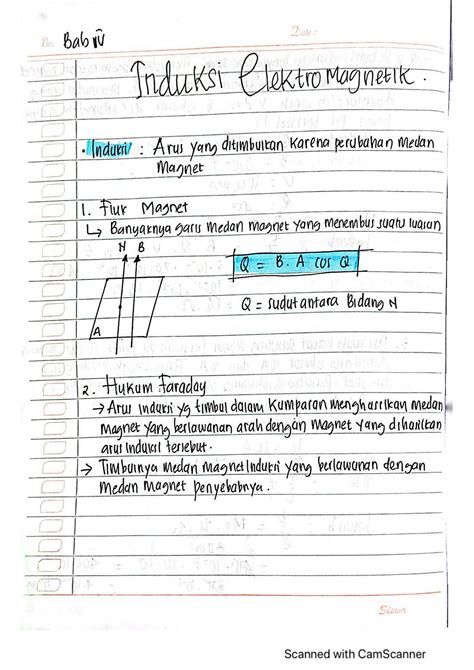 No. Bab IV
Date :
Induksi Elektro Magnetik.
• Induksi : Arus yang ditimbulkan karena perubahan medan
Magnet
1. Fluk Magnet
↳ Banyaknya garis medan magnet yang menembus suatu luasan
N B
Q = B . A cos Q
A
Q = sudut antara Bidang N
2. Hukum Faraday
→ Arus Induksi yg timbul dalam Kumparan menghasilkan medan
magnet yang berlawanan arah dengan magnet yang dihasilkan
arus Induksi tersebut.
→ Timbulnya medan magnet Induksi yang berlawanan dengan
medan Magnet penyebabnya.
Scanned with CamScanner